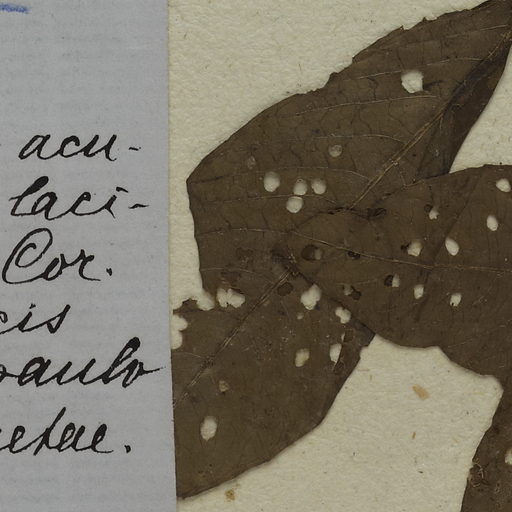 acu-
laci-
Cor.
cis
paulo
etae.